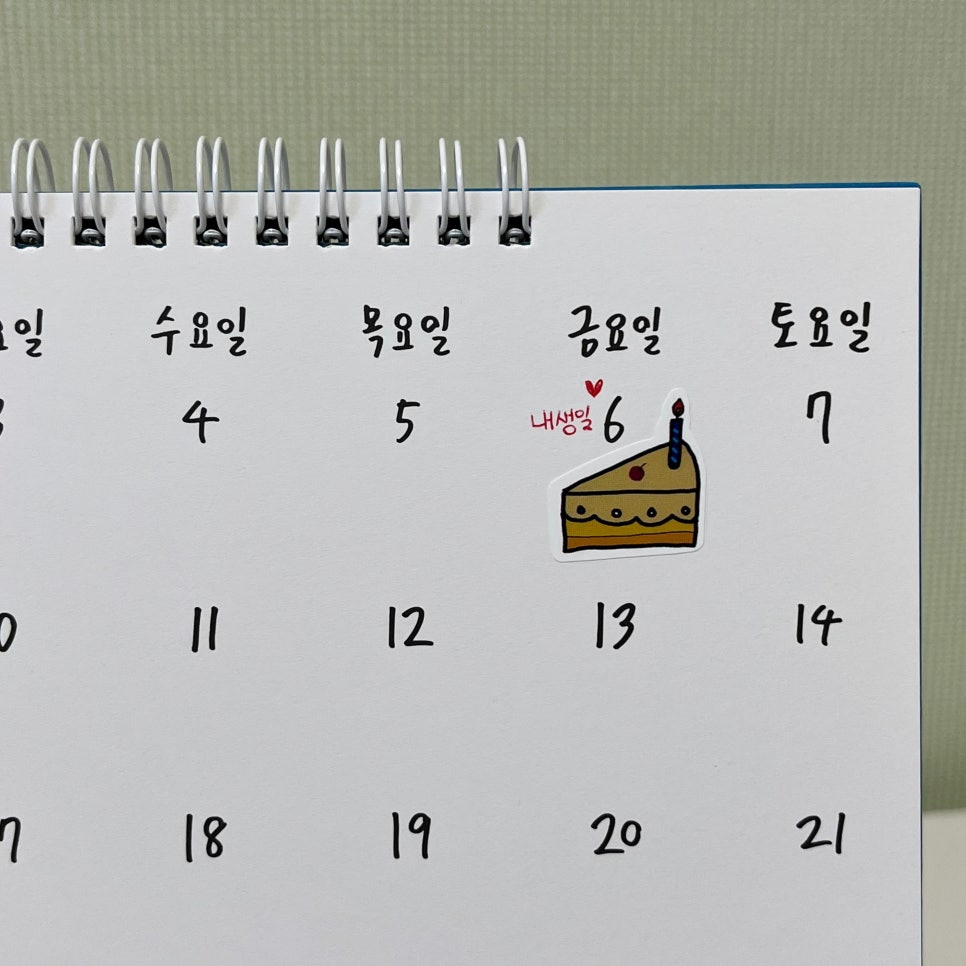 요일 수요일 목요일 금요일 토요일
3 4 5 내생일 6 7
10 11 12 13 14
17 18 19 20 21